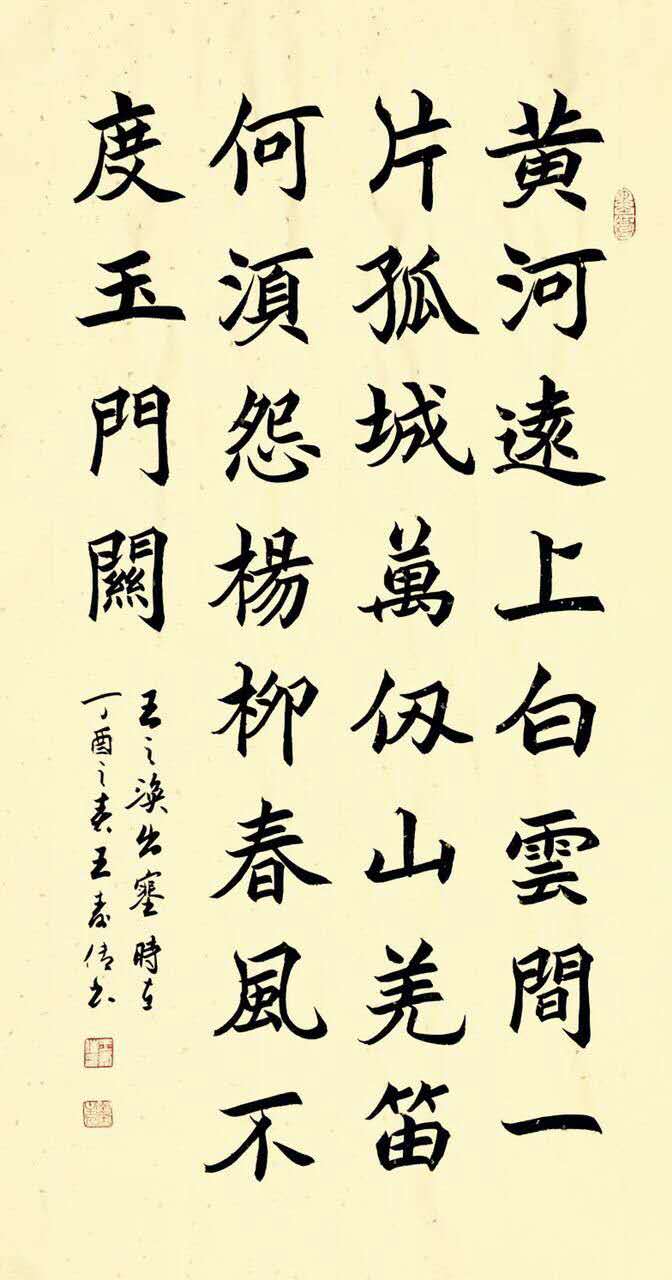 黄河遠上白雲間一
片孤城萬仞山羌笛
何須怨楊柳春風不
度玉門關
王之渙出塞時在
丁酉之春王春信书